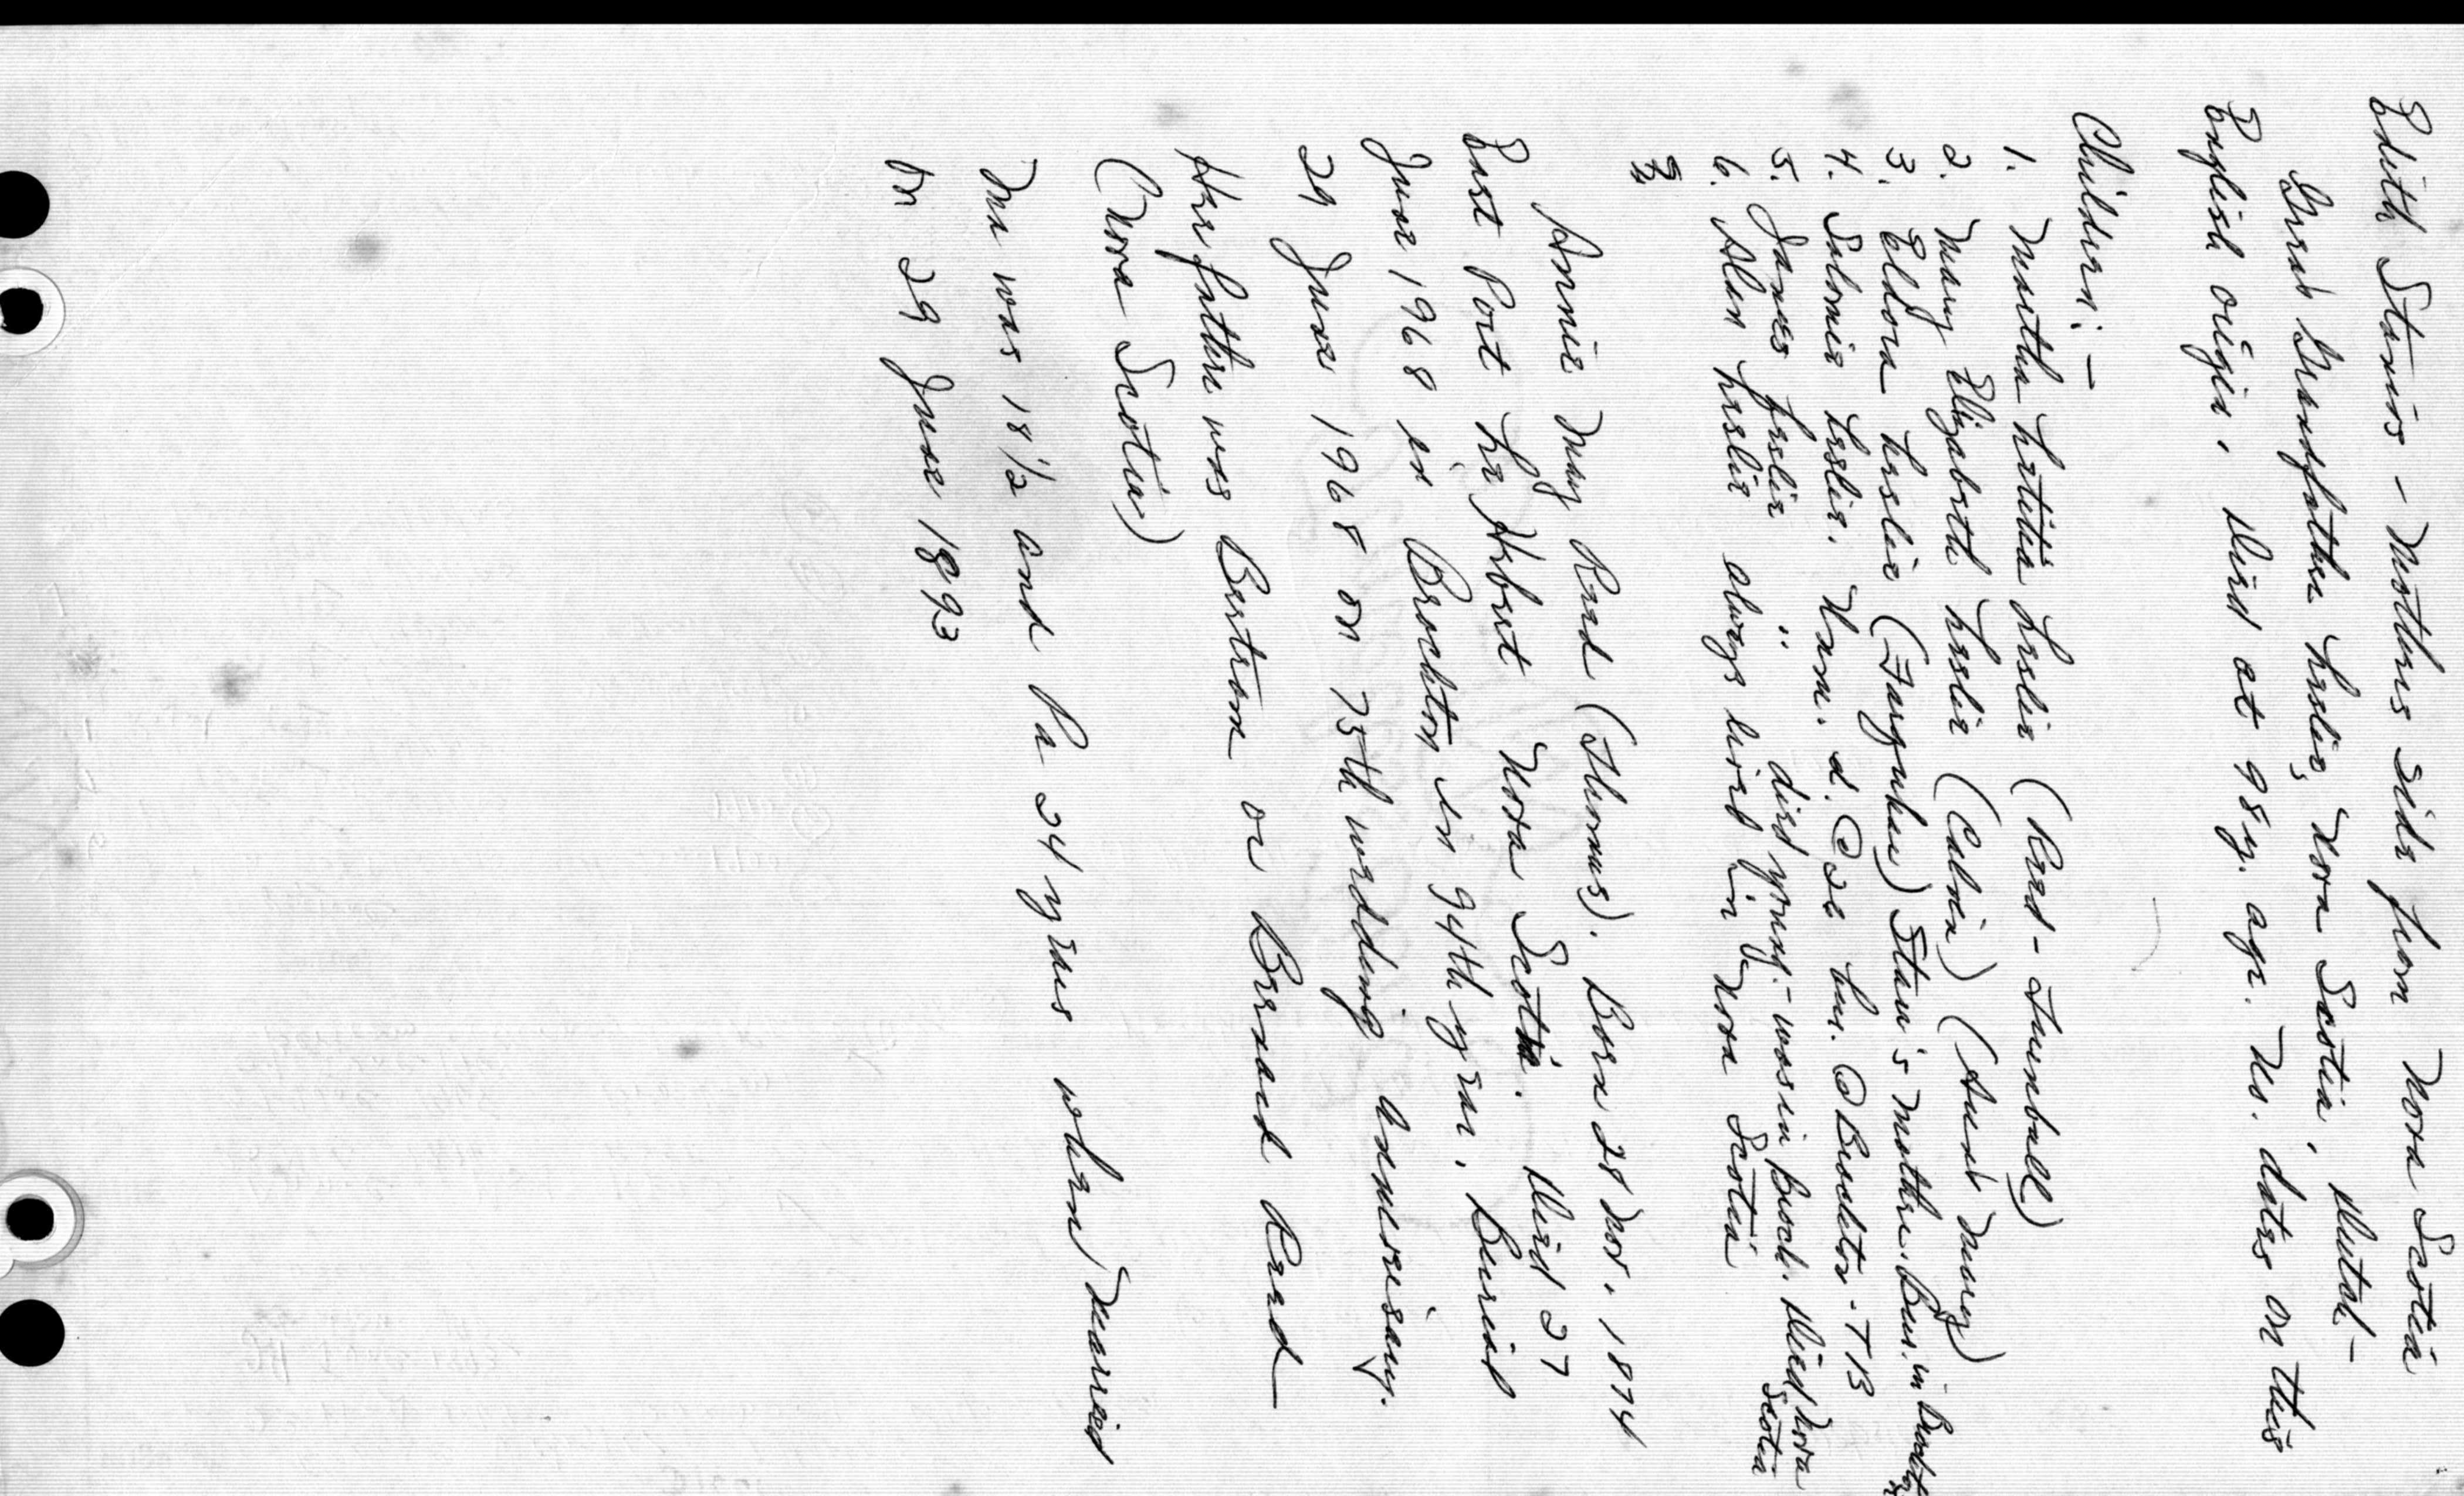 Edith Staw's - Mothers side from Nova Scotia
Great Grandfather Leslie, Nova Scotia, Dutch-
English origin. Died at 98 y. age. No. dates on this
Children: -
1. Martha Letitia Leslie (Reed - Turnbull)
2. Mary Elizabeth Leslie (Calvin) (Aunt Mary)
3. Eldora Leslie (Farquhar) Staw's Mother. Bur. in Brockton
4. Salomie Leslie. Unm. d. @ 32 bur. @ Brockton - TB
5. James Leslie " died young - was in Bosch. Died Nova Scotia
6. Alan Leslie always lived in Nova Scotia
Annie May Reed (Thomas). Born 28 Nov. 1874
East Port La Hebert Nova Scotia. Died 27
June 1968 in Brockton in 94th year. Buried
29 June 1968 on 75th wedding Anniversary.
Her father was Bertram or Bernard Reed
(Nova Scotia)
Ma was 18 1/2 and Pa 24 years when married
on 29 June 1893